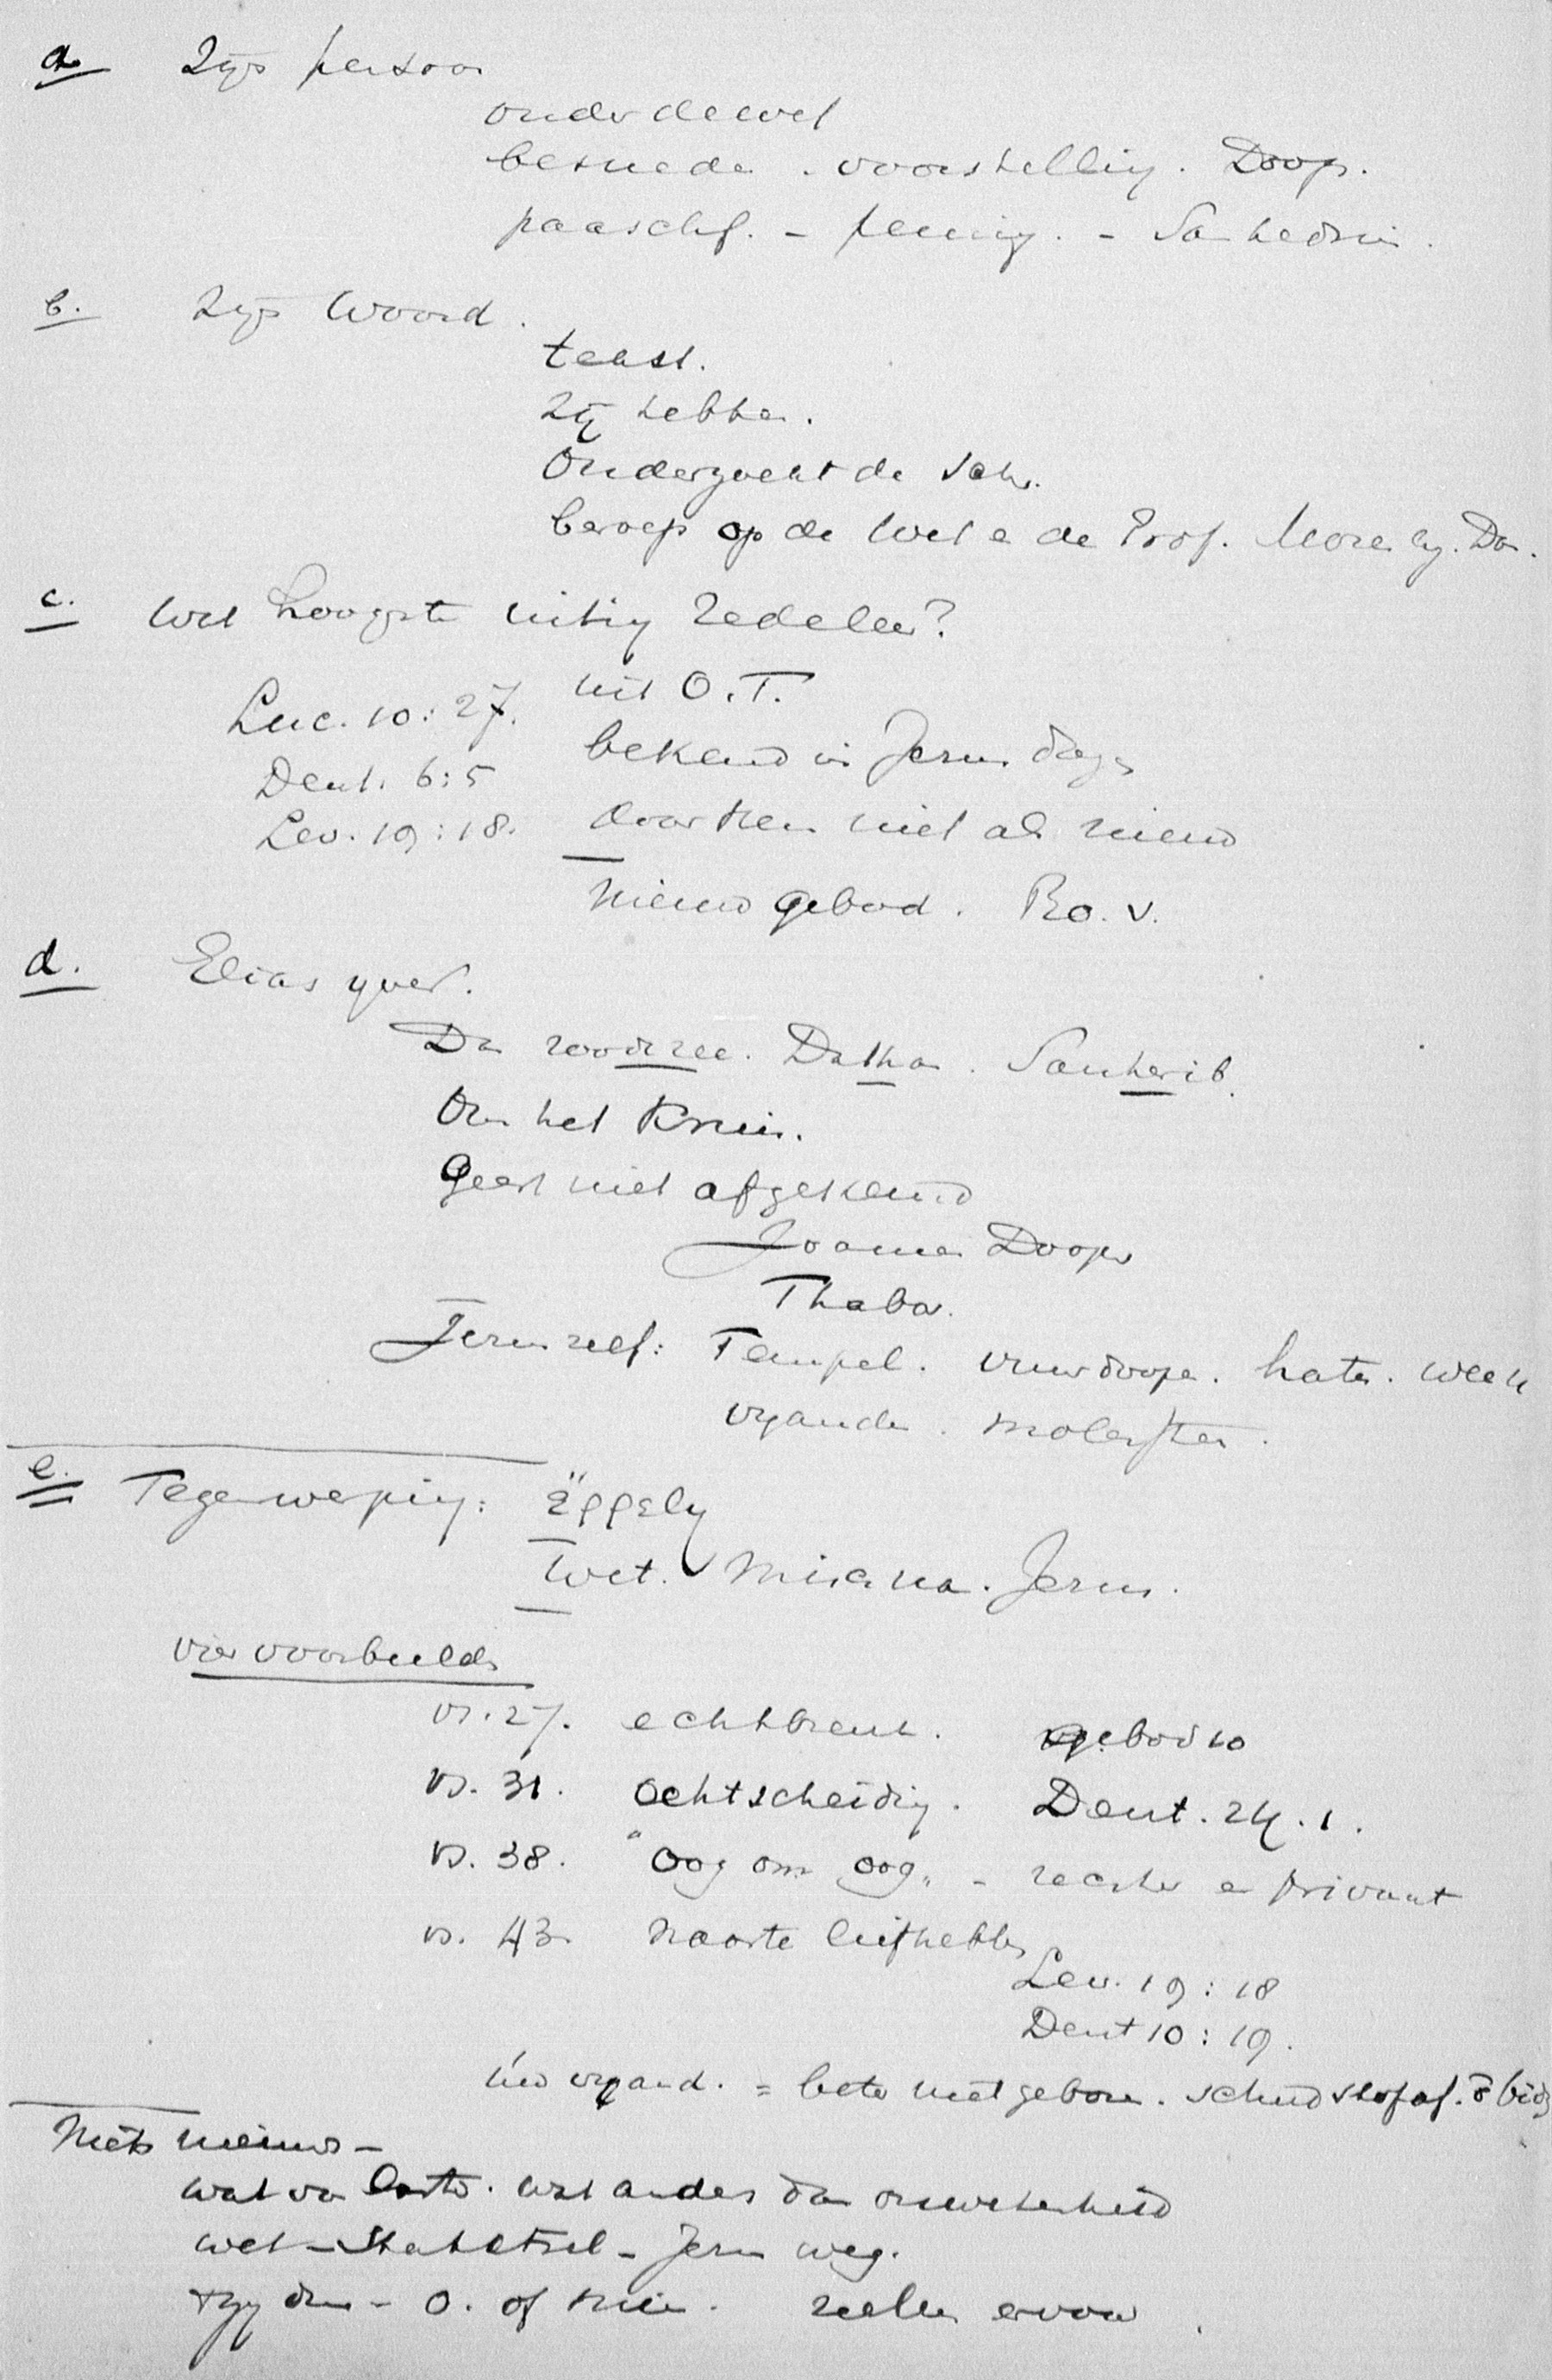 a. Zijn persoon
onder de wet
besnede. voorstelling. Doop.
paaschf. - penning. - Sanhedrin.
b. Zijn Woord.
tekst.
Zij hebben.
Onderzoekt de Schr.
beroep op de Wet e de Prof. Mozes Da.
c. Wet hoogste uiting zedeleer?
Luc. 10:27. uit O.T.
Deut. 6:5 bekend in Jezus dagen
Lev. 19:18. door hem niet als nieuw
nieuw gebod. Ro. v.
d. Elias ijver.
De roode zee. Dathan. Sanherib.
Om het Kruis.
Geest niet afgekeurd
Joannes Dooper
Thabor.
Jezus zelf: Tempel. vuurdoope. haten. wee u
vijanden. molensteen.
e. Tegenwerping:
Wet. Mischna. Jezus.
vier voorbeelden
vs. 27. echtbreuk. gebod 10
vs. 31. echtscheiding. Deut. 24.1.
vs. 38. "oog om oog" - rechter e privaat
vs. 43 naaste liefhebben
Lev. 19:18
Deut 10:19.
uw vijand. = beter niet geboren. schud stof af.
Niets nieuws -
wat van wat anders dan onwetenheid
wet - - Jezus weg.
- O. of